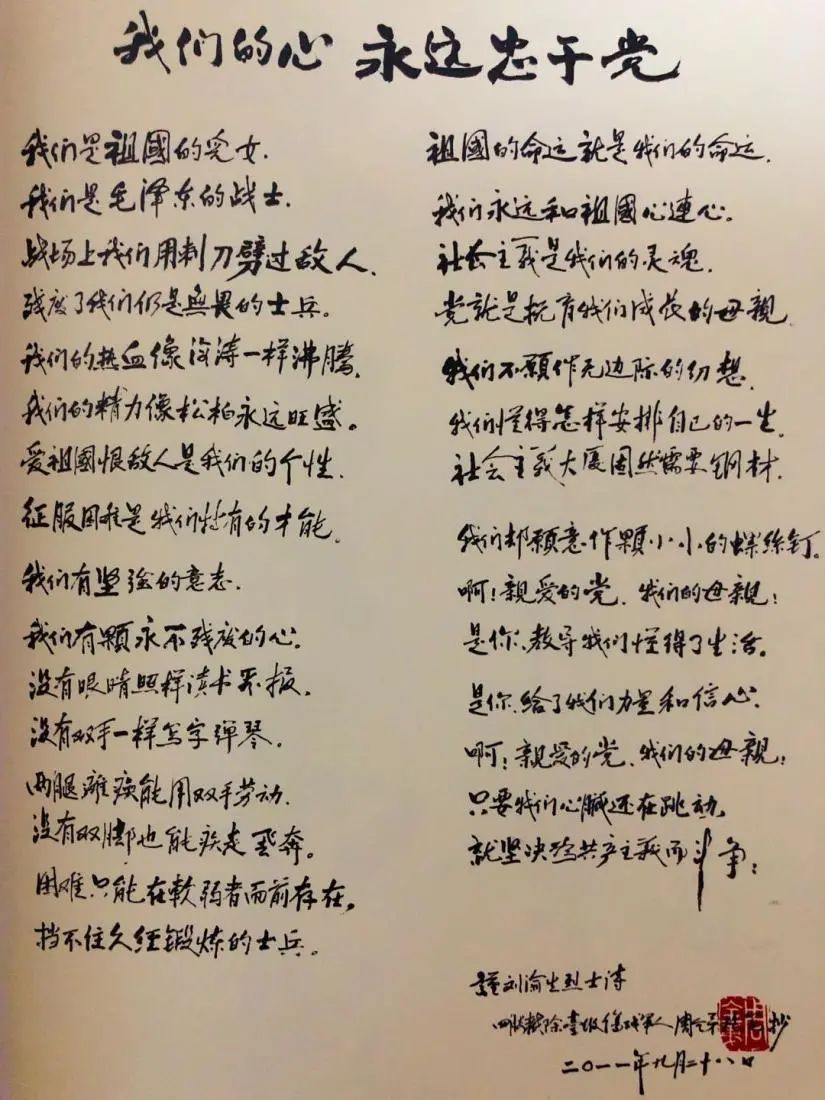 我们的心 永远忠于党
我们是祖國的児女.
我们是毛泽东的战士.
战场上我们用刺刀劈过敌人.
残废了我们仍是無畏的士兵。
我们的热血像海涛一样沸騰.
我们的精力像松柏永远旺盛。
爱祖國恨敌人是我们的个性.
征服困难是我们特有的才能.
我们有坚強的意志.
我们有顆永不残废的心.
没有眼睛照样读书看报.
没有双手一样写字弹琴.
两腿瘫痪能用双手劳动.
没有双脚也能疾走飛奔。
困难只能在軟弱者面前存在,
挡不住久经鍛炼的士兵.
祖國的命运就是我们的命运.
我们永远和祖國心連心.
社会主义是我们的灵魂.
党就是抚育我们成长的母親.
我们不願作无边际的幻想.
我们懂得怎样安排自己的一生.
社会主義大厦固然需要钢材.
我们却願意作顆小小的螺絲钉.
啊!親爱的党.我们的母親!
是你.教导我们懂得了生活。
是你.给了我们力量和信心.
啊!親爱的党.我们的母親!
只要我们心臓还在跳动.
就坚决为共产主義而斗争!
谨刘渝生烈士诗
四肢截除壹级伤残军人 周全弟 抄
二〇一一年九月二十八日